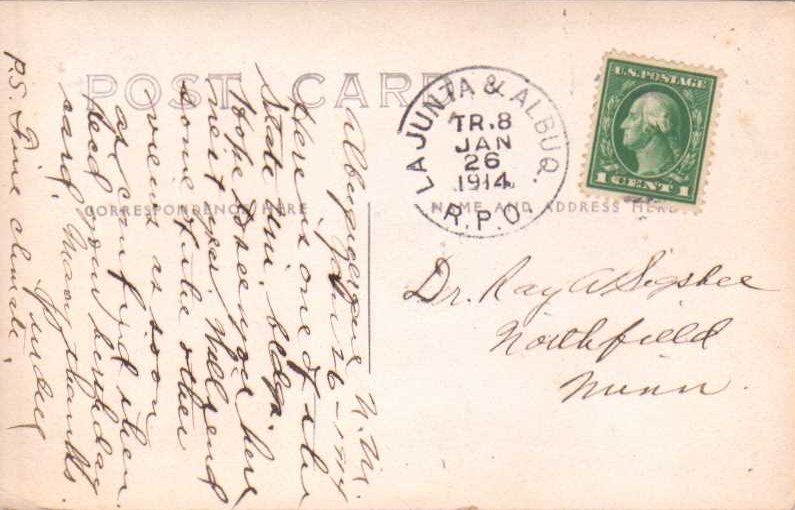 POST CARD
CORRESPONDENCE HERE
NAME AND ADDRESS HERE
LA JUNTA & ALBUQ.
TR.8
JAN
26
1914
R.P.O.
U.S. POSTAGE
1 CENT 1
Dr. Ray A Sigsbee
Northfield
Minn.
Albuquerque N. M.
Jan 26 - 1914
Here is one of the
State Uni. bldgs.
Hope to see you here
next year. Will send
some of the other
views as soon
as can find them.
Recd your birthday
card. Many thanks.
P.S. Fine climate.